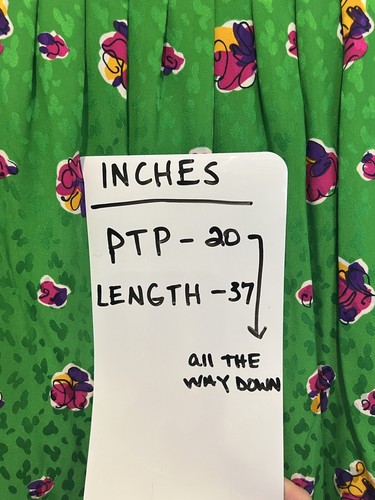 INCHES
PTP - 20
LENGTH - 37
all THE
WAY DOWN